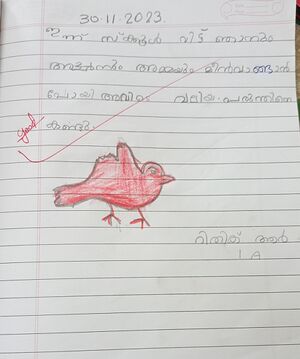 30.11.2023.
ഇന്ന് സ്കൂൾ വിട്ട് ഞാനും
അച്ഛനും അമ്മയും മീൻവാങ്ങാൻ
പോയി അവിടെ വലിയ പരുന്തിനെ
കണ്ടു.
good
റിതിക് ആർ
1 A